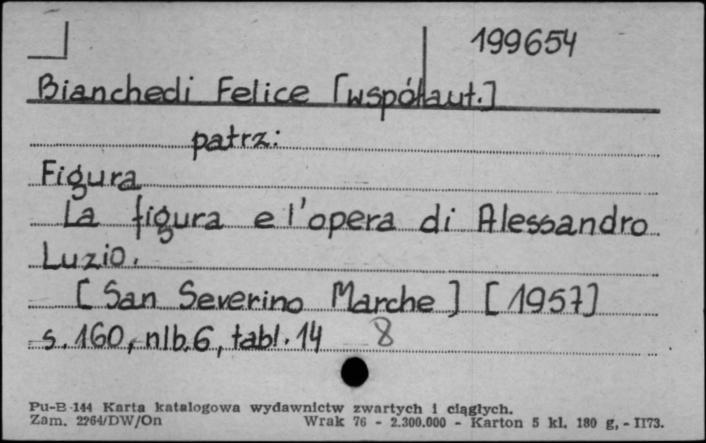 199654
Bianchedi Felice [współaut.]
patrz:
Figura
La figura e l'opera di Alessandro
Luzio.
[San Severino Marche] [1957]
s. 160, nlb. 6, tabl. 14 8
Pu-B-144 Karta katalogowa wydawnictw zwartych i ciągłych.
Zam. 2264/DW/On Wrak 76 - 2.300.000 - Karton 5 kl. 180 g, - II73.